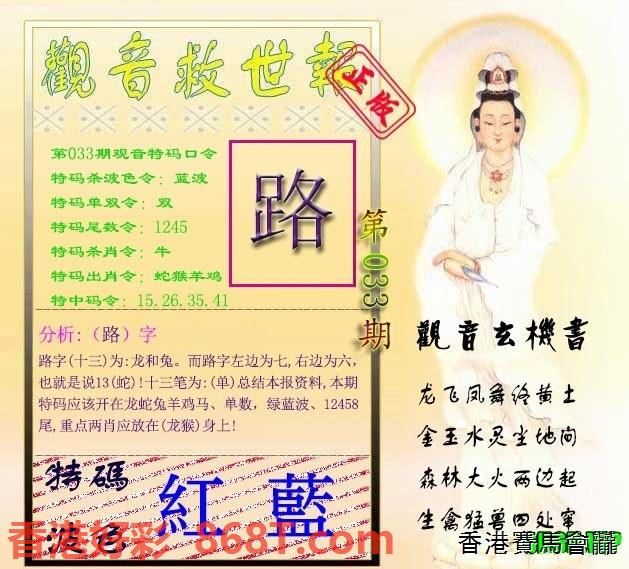 觀音救世報
正版
第033期观音特码口令
特码杀波色令：蓝波
特码单双令：双
特码尾数令：1245
特码杀肖令：牛
特码出肖令：蛇猴羊鸡
特中码令：15.26.35.41
路
第033期
分析:（路）字
路字(十三)为:龙和兔。而路字左边为七,右边为六,
也就是说13(蛇)!十三笔为:(单)总结本报资料,本期
特码应该开在龙蛇兔羊鸡马、单数，绿蓝波、12458
尾,重点两肖应放在(龙猴)身上!
觀音玄機書
龙飞凤舞终黄土
金玉水灵尘地间
森林大火两边起
生禽猛兽四处窜
特碼
波色
紅 藍
香港好彩 8687.com
香港賽馬會